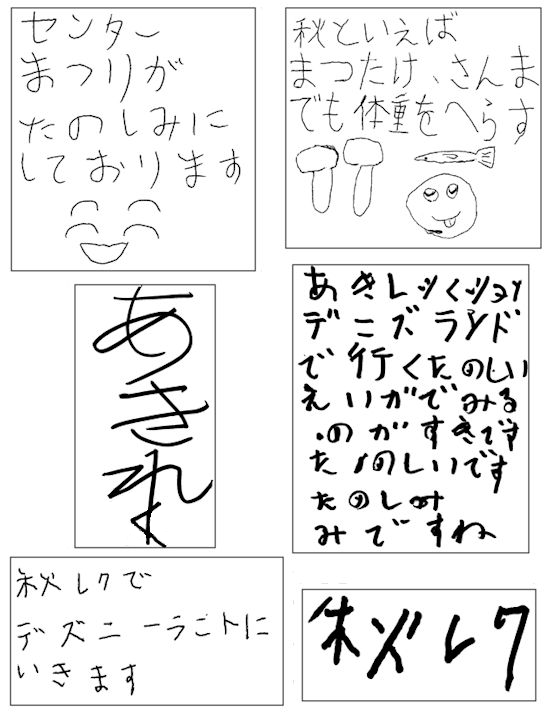 センター
まつりが
たのしみに
しております
秋といえば
まつたけ、さんま
でも体重をへらす
あきれく
あきレックツョン
デニズランド
で行くたのしい
えいがでみる
.のがすきです
たのしいです
たのしみ
みですね
秋レクで
デズニーランドに
いきます
秋レク